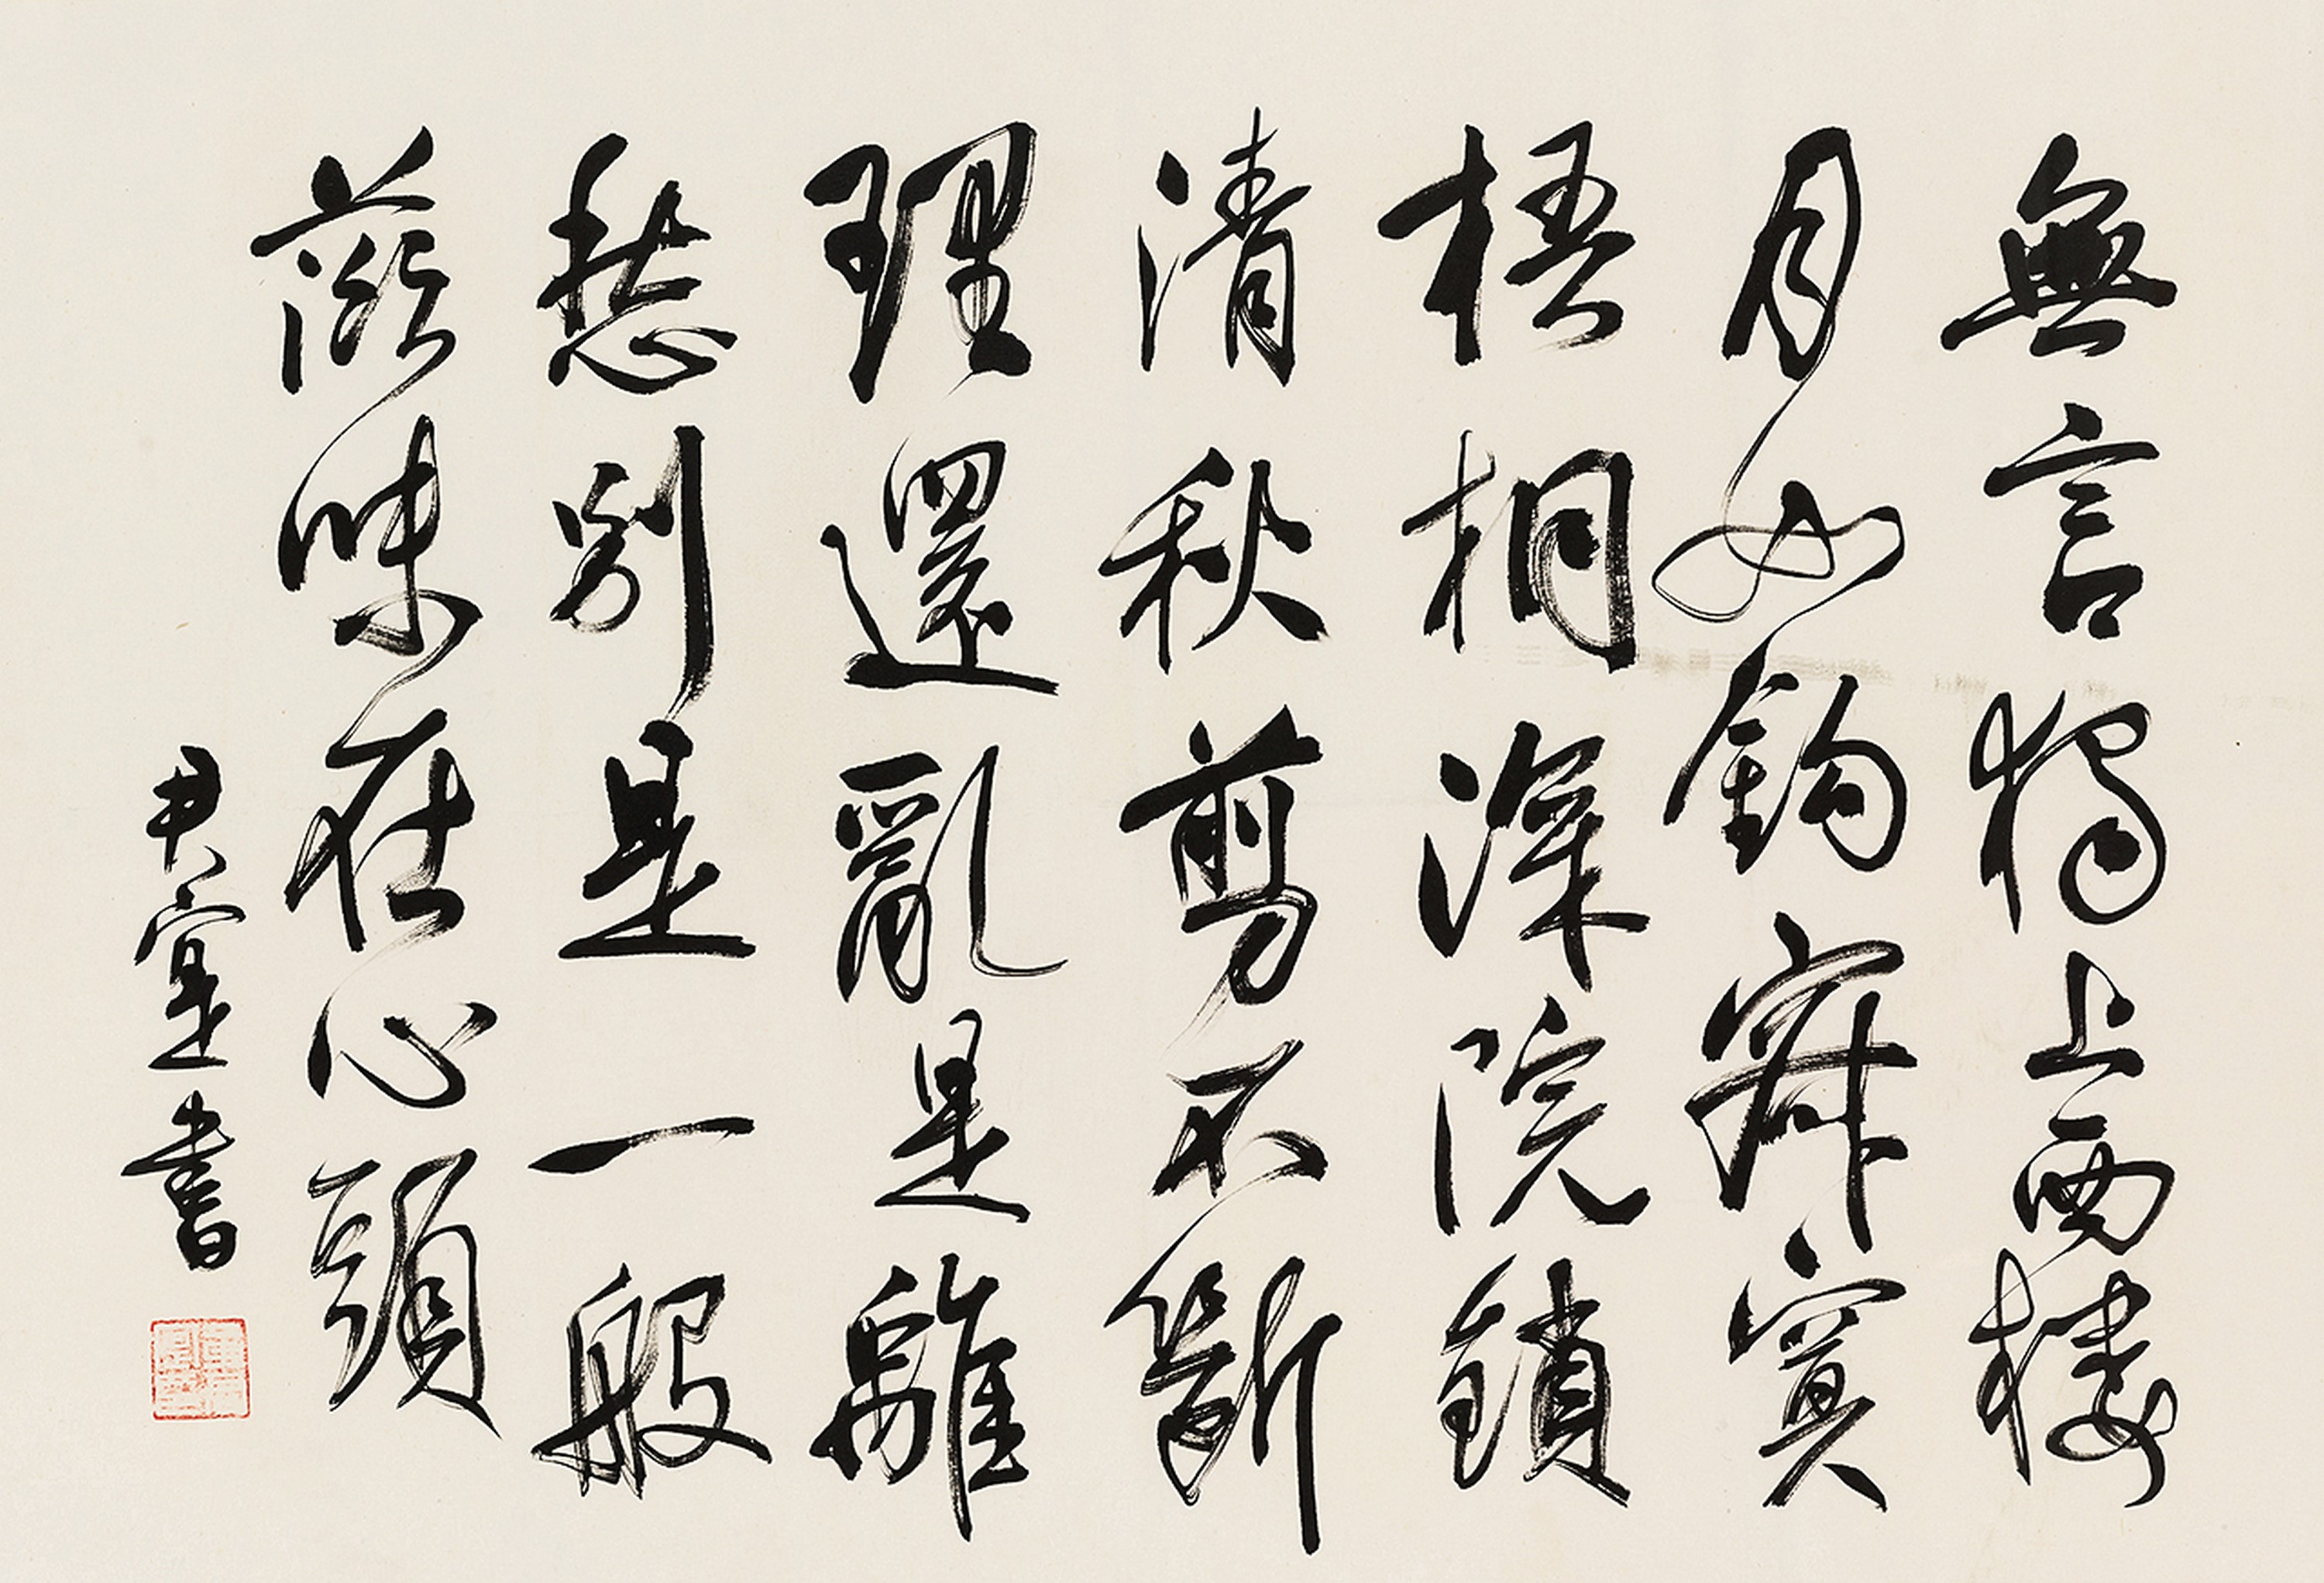 無言獨上西樓
月如鉤寂寞
梧桐深院鎖
清秋剪不斷
理還亂是離
愁別是一般
滋味在心頭
尹宣書